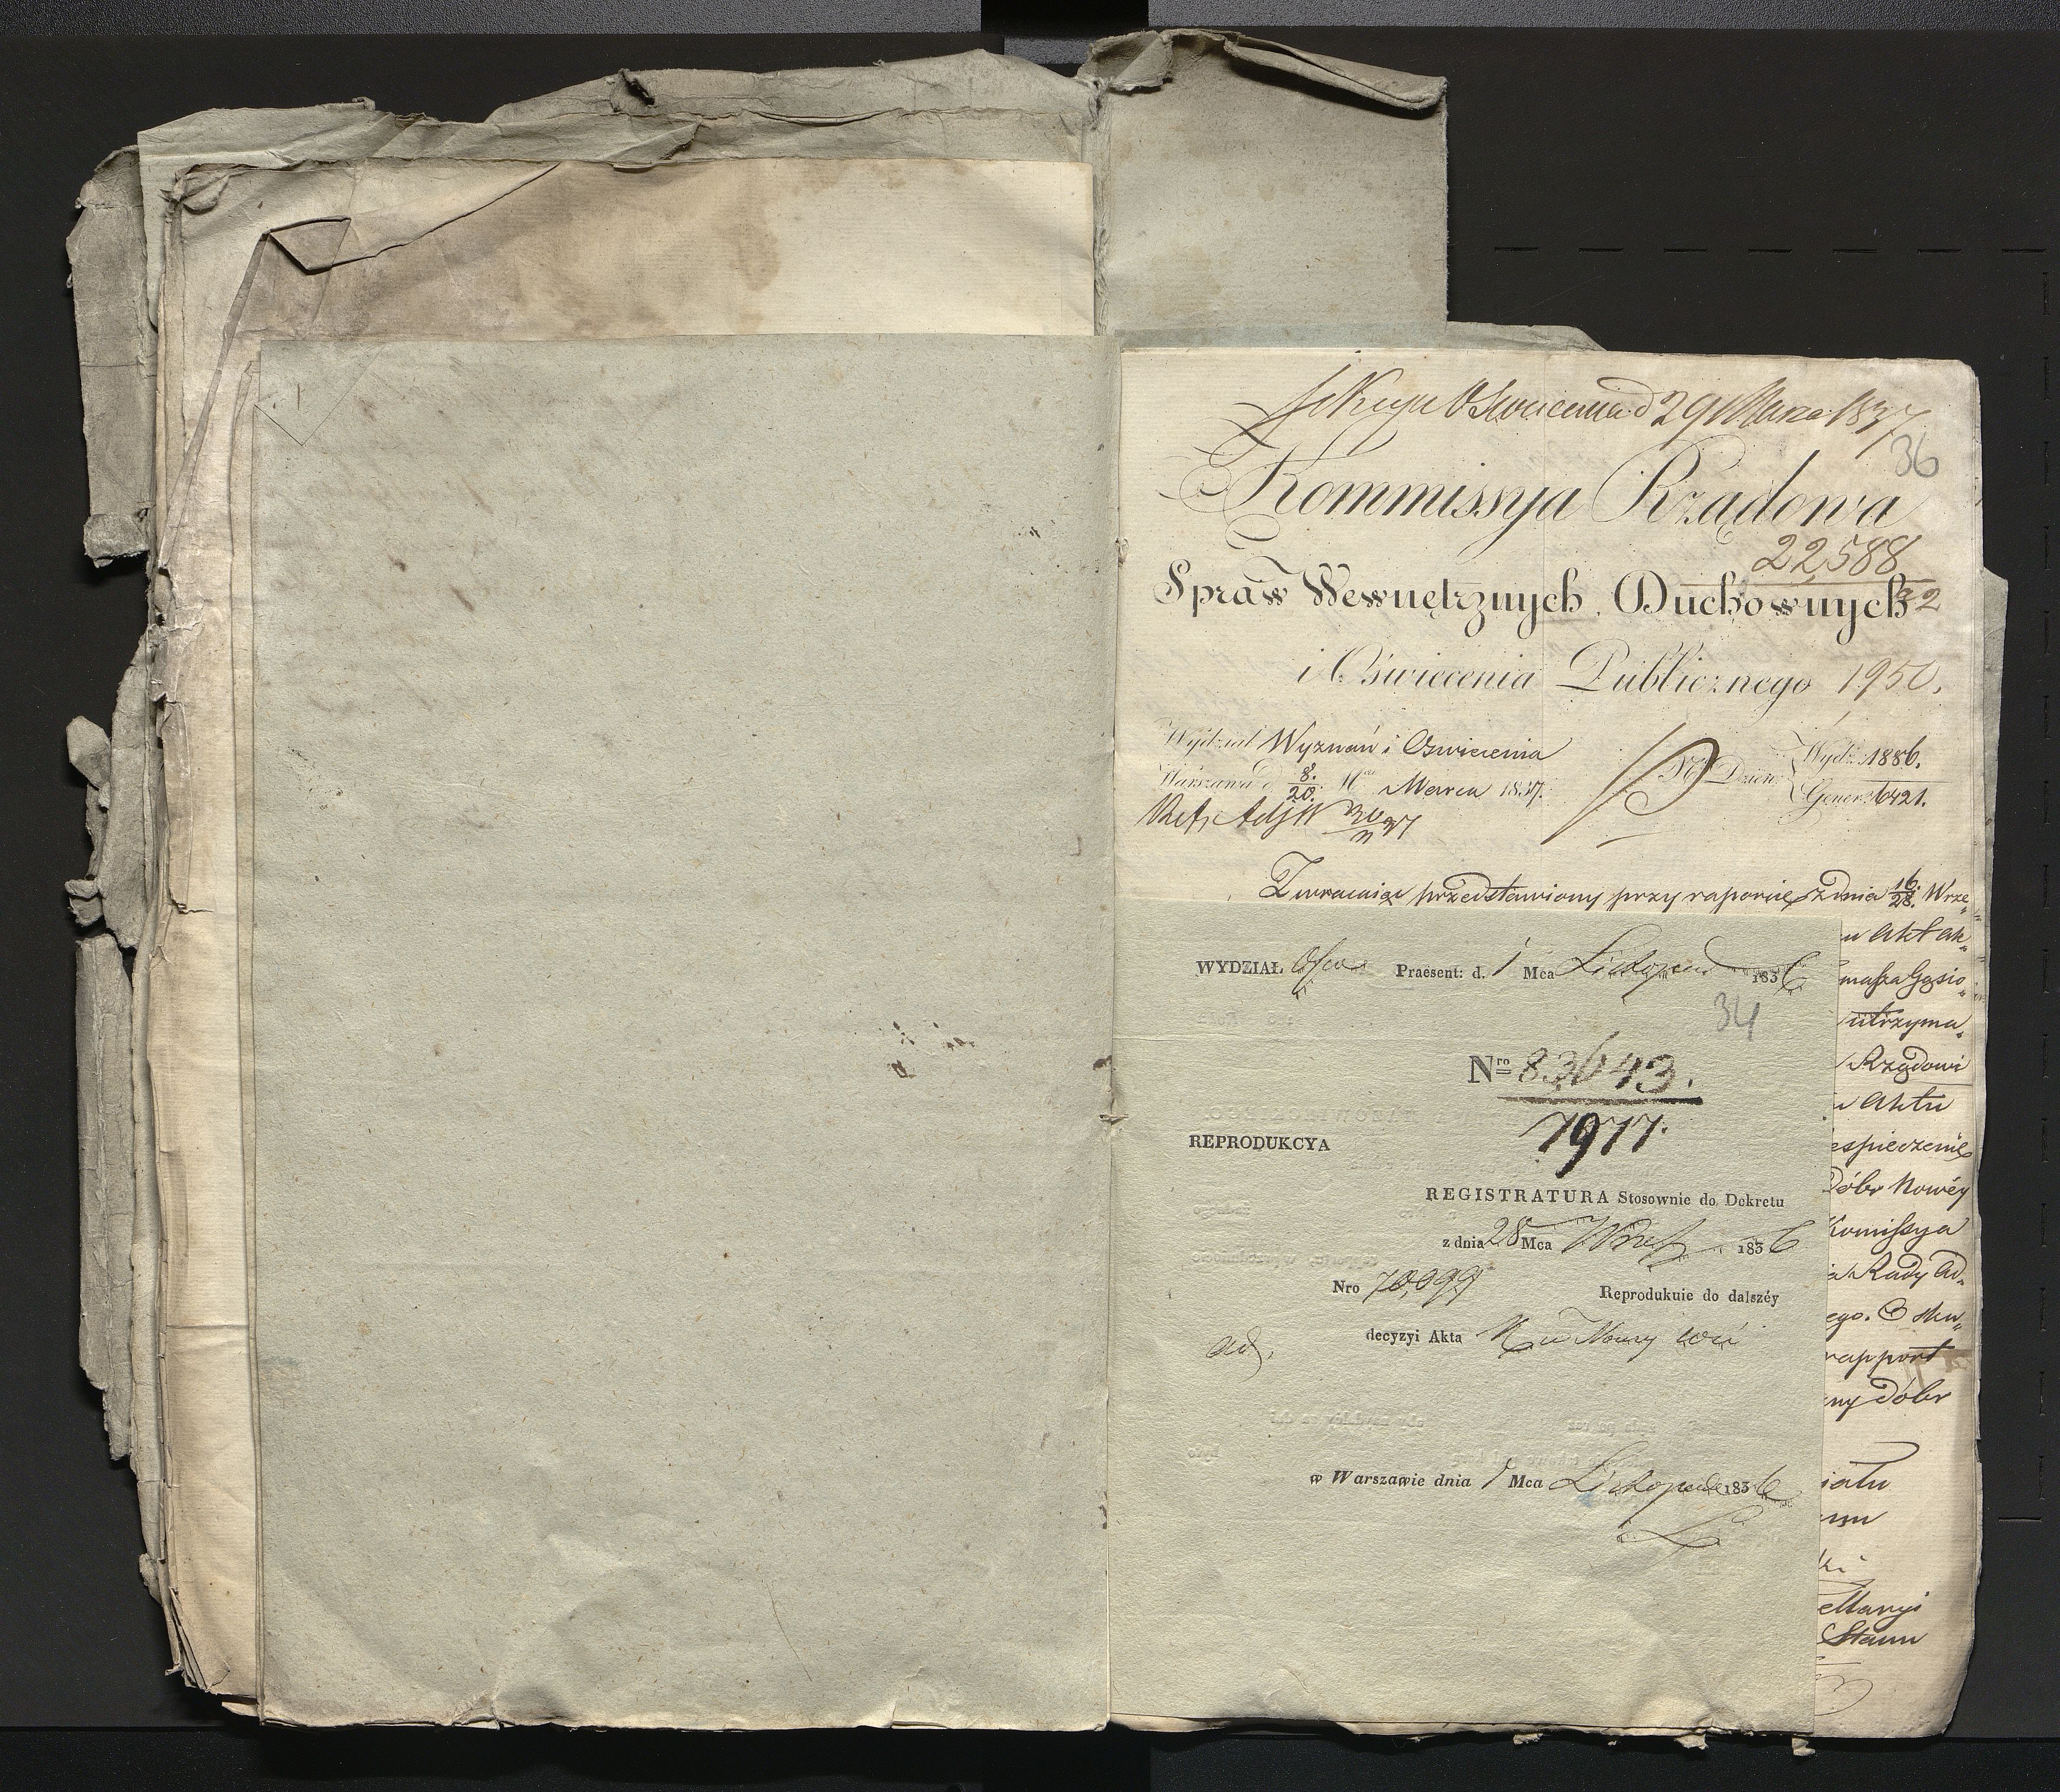 Sekcya Oświecenia d 29 Marca 1837
36
Kommissya Rządowa
22588
Spraw Wewnętrznych, Duchownych
i Oświecenia Publicznego 1950.
Wydział Wyznań i Oświecenia
Warszawa d. 8./20. Mca Marca 1837.
N Dzien: Wydz: 1886.
Gener: 16421.
Zwracaiąc przedstawiony przy raporcie z dnia 16./28. Wrze„
Akt ak„
masza Gąsio„
utrzyma„
Rządowi
Aktu
espieczenie
Dóbr Nowéy
Komissya
Rady Ad„
ego. O sku„
rapport
ny Dóbr
iału
ellaryi
Stanu
WYDZIAŁ Praesent: d. 1 Mca Listopad 1836
34
Nro 83643.
7977.
REPRODUKCYA
REGISTRATURA Stosownie do Dekretu
z dnia 28 Mca Wrześ 1836
Nro 70,099 Reprodukuie do dalszéy
decyzyi Akta Nowey wsi
ad.
w Warszawie dnia 1 Mca Listopada 1836